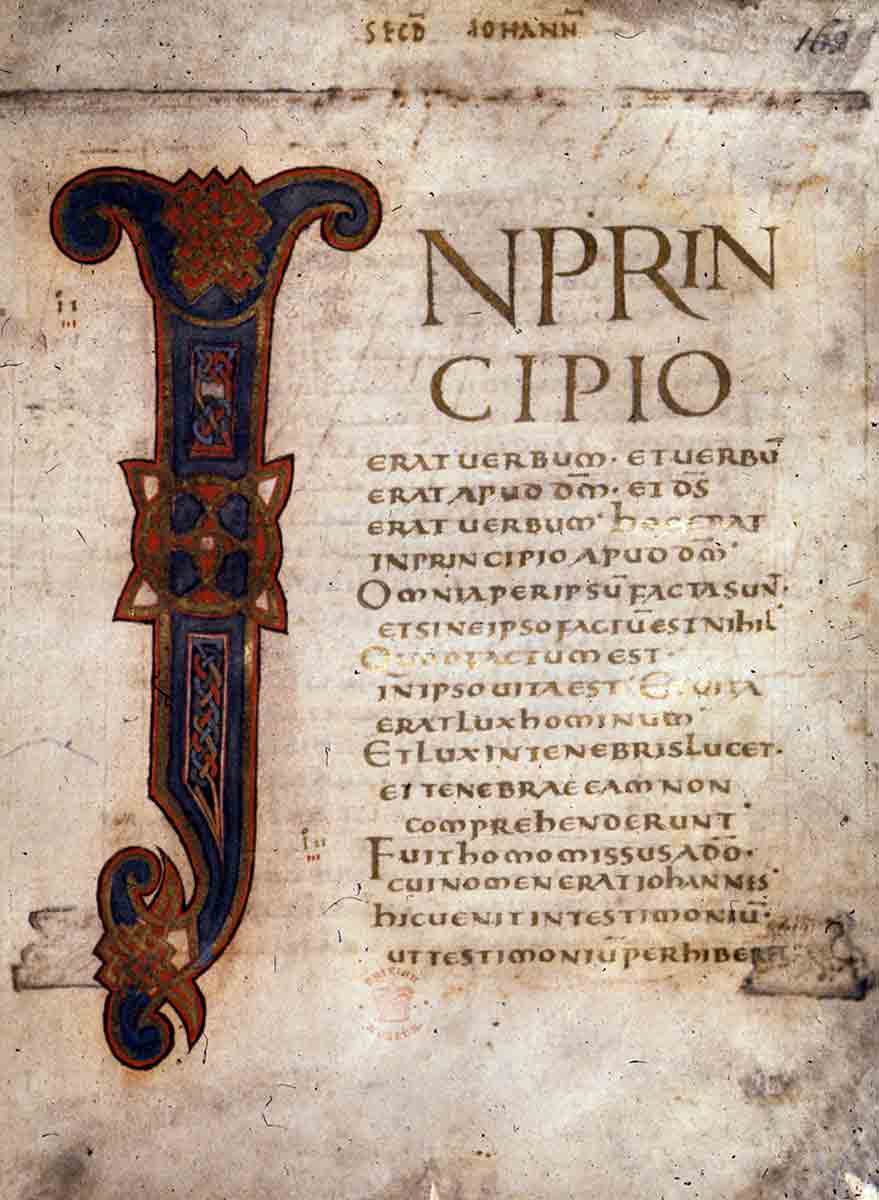 SECD̄ IOHANN̄
INPRIN
CIPIO
ERAT UERBUM · ET UERBŪ
ERAT APUD DM̄ · ET DS̄
ERAT UERBUM · hOC ERAT
IN PRINCIPIO APUD DM̄ ·
OMNIA PER IPSŪ FACTA SUN̄ ·
ET SINE IPSO FACTŪ EST NIhIL
QUOD FACTUM EST ·
IN IPSO UITA EST · ET UITA
ERAT LUX hOMINUM ·
ET LUX IN TENEBRIS LUCET ·
ET TENEBRAE EAM NON
COMPREhENDERUNT ·
FUIT hOMO MISSUS A DŌ ·
CUI NOMEN ERAT IOhANNES ·
hIC UENIT IN TESTIMONIŪ ·
UT TESTIMONIŪ PERhIBERET